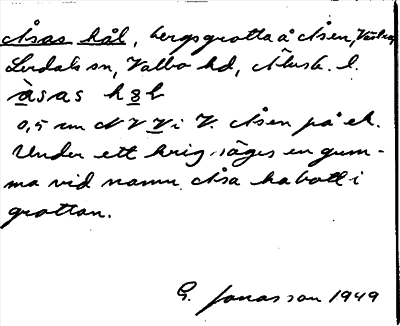 Åsas hål, bergsgrotta å Åsen, Västra
Lerdals sn, Valbo hd, Älvsb. l.
àsas h8l
0,5 cm N V V i V. Åsen på ek.
Under ett krig säges en gum-
ma vid namn Åsa ha bott i
grottan.
G. Jonasson 1949